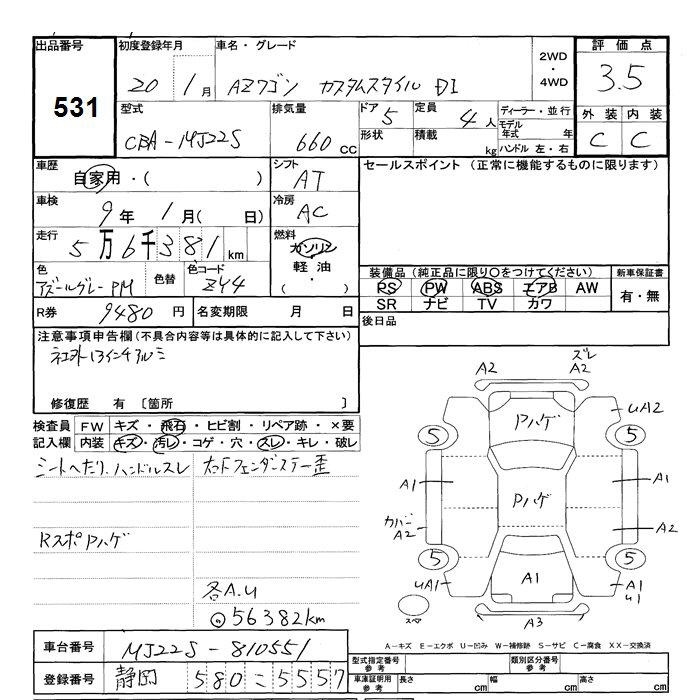 出品番号 531
初度登録年月 20 1月
車名・グレード AZワゴン カスタムスタイル DI
2WD・4WD
評価点 3.5
型式 CBA-MJ22S
排気量 660 CC
ドア 5
形状
定員 4人
積載 kg
ディーラー・並行
モデル年式 年
ハンドル 左・右
外装 内装
C C
車歴 自家用・( )
シフト AT
セールスポイント (正常に機能するものに限ります)
車検 9年 1月( 日)
冷房 AC
走行 5万6千381km
燃料 ガソリン
軽油・
( )
色 アズールグレーPM
色替
色コード ZY4
装備品 (純正品に限り○をつけてください)
PS PW ABS エアB AW
SR ナビ TV カワ
新車保証書
有・無
R券 9480 円
名変期限 月 日
後日品
注意事項申告欄(不具合内容等は具体的に記入して下さい)
社外13インチアルミ
修復歴 有 〔箇所 〕
検査員記入欄
FW キズ・飛石・ヒビ割・リペア跡・×要
内装 キズ・汚レ・コゲ・穴・スレ・キレ・破レ
シートヘたり、ハンドルスレ
右Fフェンダーステー歪
RスポPハゲ
各A.U
56382km
A2
ズレ
A2
Pハゲ
UA2
5 5
A1 A1
Pハゲ
カバー
A2
A2
5 5
UA1
A1
A1
U1
スペア
A3
A-キズ E-エクボ U-凹み W-補修跡 S-サビ C-腐食 XX-交換済
車台番号 MJ22S-810551
登録番号 静岡 580 こ 5557
型式指定番号 参考
類別区分番号 参考
車庫証明用 参考
長さ cm 幅 cm 高さ cm